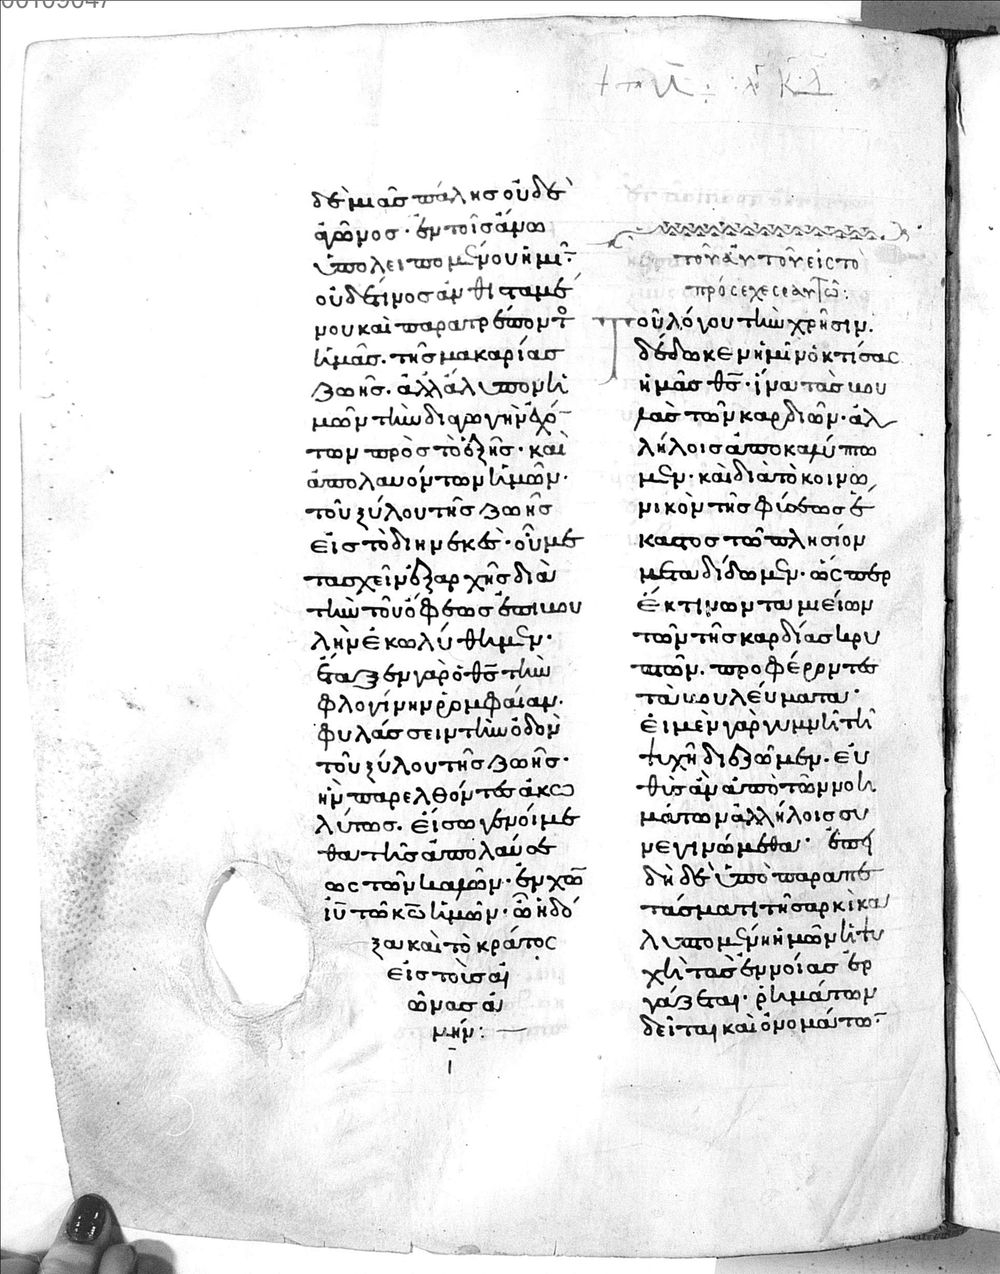 δεμιᾶς πάλης οὐδὲ
ἀγῶνος· ἐν τοῖς ἄνω
ὑπολειπομένου ἡμῖν·
οὐδέτινος ἀνθισταμέ
νου καὶ παρατρέποντος
ἡμᾶς. τῆς μακαρίας
ζωῆς. ἀλλ' ἁλύπον ἡ
μῶν τὴν διαγωγὴν ἐχόν
των πρὸς τὸ ἑξῆς· καὶ
ἀπολαυόντων ἡμῶν·
τοῦ ξύλου τῆς ζωῆς
εἰς τὸ διηνεκὲς· οὗ με
τασχεῖν ἐξαρχῆς διὰ
τὴν τοῦ ὄφεως ἐπιβου
λὴν ἐκωλύθημεν·
ἔταξεν γὰρ ὁ θς τὴν
φλογίνην ῥομφαίαν.
φυλάσσειν τὴν ὁδὸν
τοῦ ξύλου τῆς ζωῆς·
ἣν παρελθόντες ἀκω
λύτως. εἴσω γενοίμε
θα τῆς ἀπολαύσε
ως τῶν ἀγαθῶν· ἐν χω
ιυ τῶ κω ἡμῶν· ὧ ἡ δό
ξα καὶ τὸ κράτος
εἰς τοὺς αἰ
ῶνας ἀ
μήν:
τοῦ αὐτοῦ εἰς τὸ
πρόσεχε σεαυτῶ:
Τοῦ λόγου τὴν χρῆσιν.
δέδωκεν ἡμῖν ὁ κτίσας
ἡμᾶς θς· ἵνα τὰς βου
λὰς τῶν καρδιῶν· ἀλ
λήλοις ἀποκαλύπτω
μεν· καὶ διὰ τὸ κοινω
νικὸν τῆς φύσεως ἕ
καστος τῶ πλησίον
μεταδίδωμεν· ὥσπερ
ἔκ τινων ταμιείων
τῶν τῆς καρδίας κρυ
πτῶν. προφέροντες
τὰ βουλεύματα·
εἰ μὲν γὰρ γυμνῆ τῆ
ψυχῆ διεζῶμεν. εὐ
θὺς ἂν ἀπὸ τῶν νοη
μάτων ἀλλήλοις συ
νεγινώμεθα· ἐπει
δὴ δὲ ὑπὸ παραπε
τάσματι τῆ σαρκὶ κα
λυπτομένη ἡμῶν ἡ ψυ
χὴ τὰς ἐννοίας ἐρ
γάζεται· ῥημάτων
δεῖται καὶ ὀνομάτων·